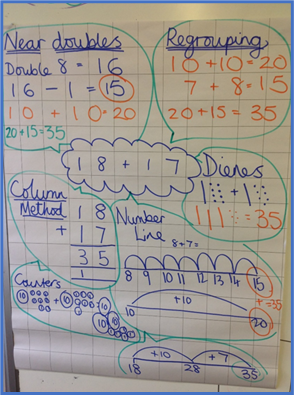 Near doubles
Double 8 = 16
16 - 1 = 15
10 + 10 = 20
20 + 15 = 35
Regrouping
10 + 10 = 20
7 + 8 = 15
20 + 15 = 35
18 + 17
Dienes
+
= 35
Column
Method
18
+ 17
35
1
Number
Line
8 + 7 =
8 9 10 11 12 13 14 15
+10
10 20
+ = 35
Counters
10 + 10
10
10
+10 +7
18 28 35